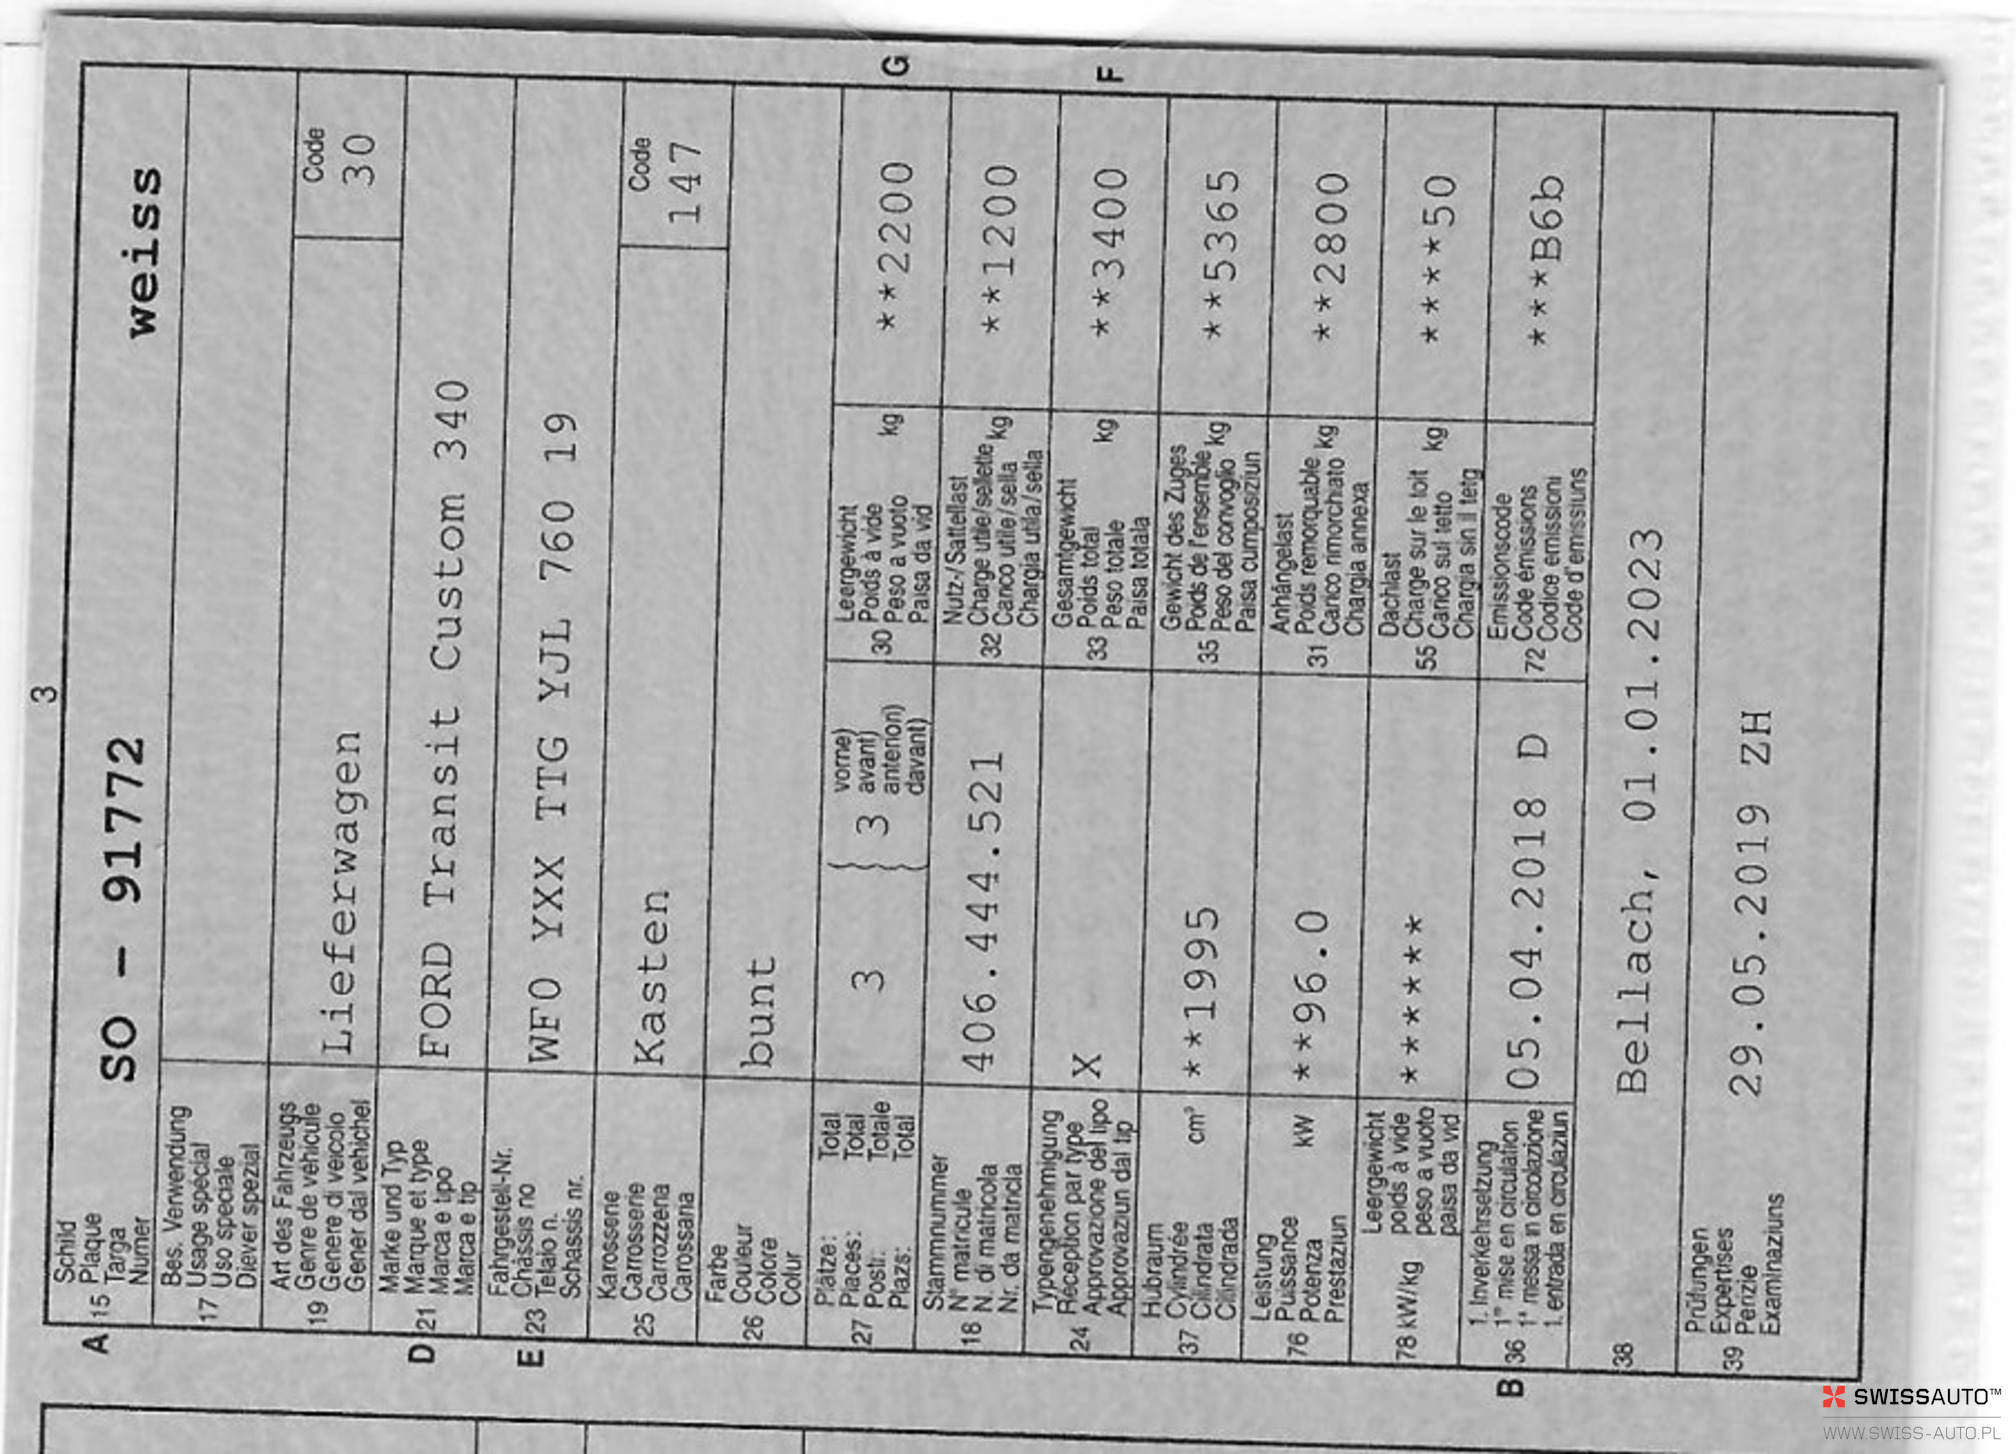 3
A
Schild
15 Plaque
Targa
Numer
SO - 91772 weiss
Bes. Verwendung
17 Usage spécial
Uso speciale
Diever spezial
Art des Fahrzeugs
19 Genre de véhicule
Genere di veicolo
Gener dal vehichel
Lieferwagen
Code
30
D
Marke und Typ
21 Marque et type
Marca e tipo
Marca e tip
FORD Transit Custom 340
E
Fahrgestell-Nr.
23 Châssis no
Telaio n.
Schassis nr.
WF0 YXX TTG YJL 760 19
Karosserie
25 Carrosserie
Carrozzeria
Carossaria
Kasten
Code
147
Farbe
26 Couleur
Colore
Colur
bunt
Plätze: Total
27 Places: Total
Posti: Totale
Plazs: Total
3
3
vorne)
avant)
anteriori)
davant)
Leergewicht
30 Poids à vide
Peso a vuoto kg
Paisa da vid
**2200
G
Stammnummer
18 N° matricule
N. di matricola
Nr. da matricla
406.444.521
Nutz-/Sattellast
32 Charge utile/sellette kg
Carico utile/sella
Chargia utila/sella
**1200
Typengenehmigung
24 Réception par type
Approvazione del tipo
Approvaziun dal tip
X
Gesamtgewicht
33 Poids total kg
Peso totale
Paisa totala
**3400
F
Hubraum
37 Cylindrée cm³
Cilindrata
Cilindrada
**1995
Gewicht des Zuges
35 Poids de l'ensemble kg
Peso del convoglio
Paisa cumposiziun
**5365
Leistung
76 Puissance kW
Potenza
Prestaziun
**96.0
Anhängelast
31 Poids remorquable kg
Carico rimorchiato
Chargia annexa
**2800
78 kW/kg
Leergewicht
poids à vide
peso a vuoto
paisa da vid
*******
Dachlast
55 Charge sur le toit kg
Carico sul tetto
Chargia sin il tetg
****50
B
1. Inverkehrsetzung
36 1re mise en circulation
1a messa in circolazione
1. entrada en circulaziun
05.04.2018 D
Emissionscode
72 Code émissions
Codice emissioni
Code d'emissiuns
***B6b
38
Bellach, 01.01.2023
Prüfungen
39 Expertises
Perizie
Examinaziuns
29.05.2019 ZH
SWISSAUTO™
WWW.SWISS-AUTO.PL